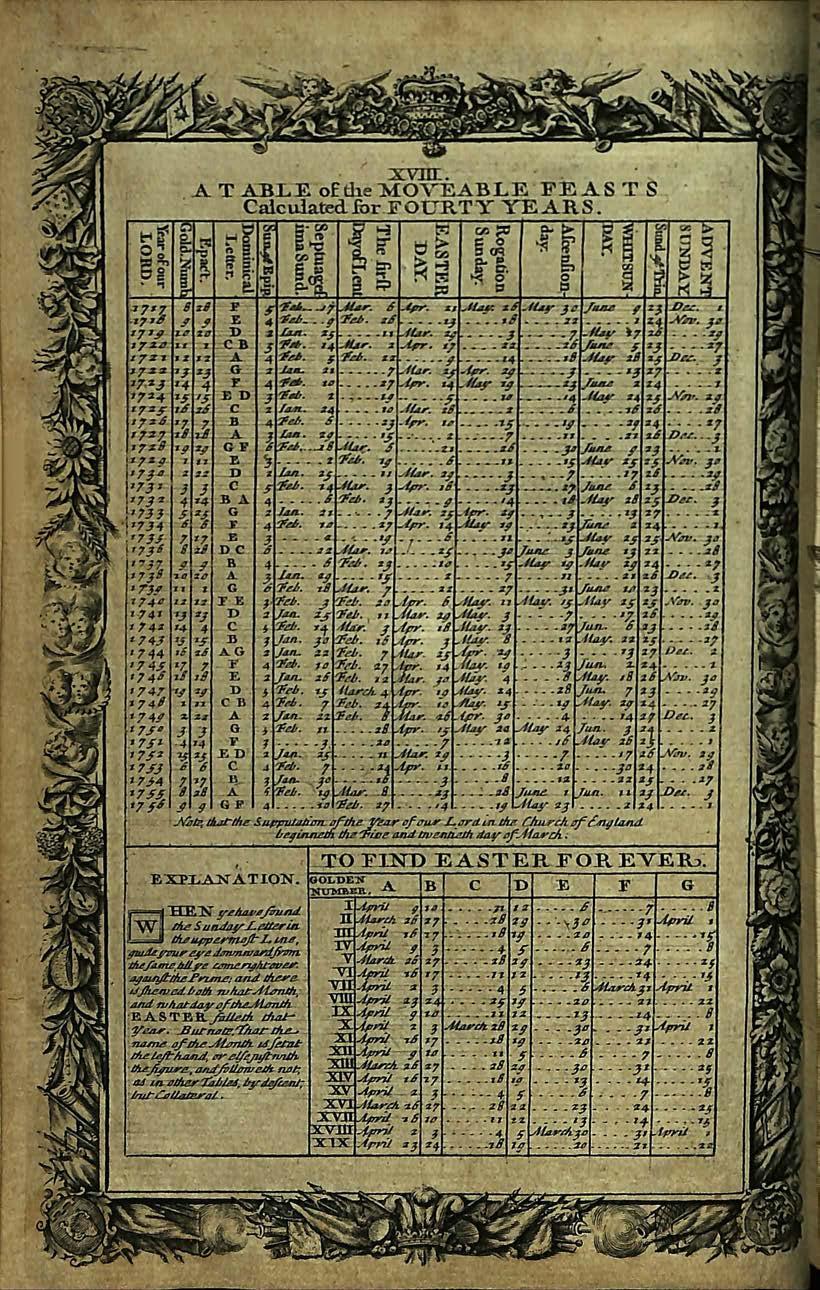 XVIII.
A TABLE of the MOVEABLE FEASTS
Calculated for FOURTY YEARS.
Year of our LORD. Gold. Numb Epact. Dominical Letter. Sun. aft Epip Septuagesima Sund. The first Day of Lent EASTER DAY. Rogation Sunday. Ascension-day. WHITSUN-DAY. Sund aft Trin ADVENT SUNDAY
1717 8 28 F 5 Feb. 17 Mar. 6 Apr. 21 May. 26 May 30 June 9 23 Dec. 1
1718 9 9 E 4 Feb. 9 Feb. 26 13 18 22 1 24 Nov. 30
1719 10 20 D 2 Ian. 25 11 Mar. 29 3 7 May 17 26 29
1720 11 1 C B 3 Feb. 14 Mar. 2 Apr. 17 22 26 June 5 23 27
1721 12 12 A 4 Feb. 5 Feb. 22 9 14 18 May 28 25 Dec. 3
1722 13 23 G 2 Ian. 21 7 Mar. 25 Apr. 29 3 13 27 2
1723 14 4 F 4 Feb. 10 27 Apr. 14 May 19 23 June 2 24 1
1724 15 15 E D 3 Feb. 2 19 5 10 14 May 24 25 Nov. 29
1725 16 26 C 2 Ian. 24 10 Mar. 28 2 6 16 26 28
1726 17 7 B 4 Feb. 6 23 Apr. 10 15 19 29 24 27
1727 18 18 A 3 Ian. 29 15 2 7 11 21 26 Dec. 3
1728 19 29 G F 6 Feb. 18 Mar. 6 21 26 30 June 9 23 1
1729 1 11 E 3 2 Feb. 19 6 11 15 May 25 25 Nov. 30
1730 2 22 D 2 Ian. 25 11 Mar. 29 3 7 17 26 29
1731 3 3 C 5 Feb. 14 Mar. 3 Apr. 18 23 27 June 6 23 28
1732 4 14 B A 4 6 Feb. 23 9 14 18 May 28 25 Dec. 3
1733 5 25 G 2 Ian. 21 7 Mar. 25 Apr. 29 3 13 27 2
1734 6 6 F 4 Feb. 10 27 Apr. 14 May 19 23 June 2 24 1
1735 7 17 E 3 2 19 6 11 15 May 25 25 Nov. 30
1736 8 28 D C 6 22 Mar. 10 25 30 June 3 June 13 22 28
1737 9 9 B 4 6 Feb. 23 10 15 May 19 May 29 24 27
1738 10 20 A 3 Ian. 29 15 2 7 11 21 26 Dec. 3
1739 11 1 G 6 Feb. 18 Mar. 7 22 27 31 June 10 23 2
1740 12 12 F E 3 Feb. 3 Feb. 20 Apr. 6 May. 11 May. 15 May 25 25 Nov. 30
1741 13 23 D 2 Jan. 25 Feb. 11 Mar. 29 May. 3 7 17 26 29
1742 14 4 C 5 Feb. 14 Mar. 3 Apr. 18 May. 23 27 Jun. 6 23 28
1743 15 15 B 3 Jan. 30 Feb. 16 Apr. 3 May. 8 12 May. 22 25 27
1744 16 26 A G 2 Jan. 22 Feb. 7 Mar. 25 Apr. 29 3 13 27 Dec. 2
1745 17 7 F 4 Feb. 10 Feb. 27 Apr. 14 May. 19 23 Jun. 2 24 1
1746 18 18 E 2 Jan. 26 Feb. 12 Mar. 30 May. 4 8 May. 18 26 Nov. 30
1747 19 29 D 5 Feb. 15 March 4 Apr. 19 May. 24 28 Jun. 7 23 29
1748 1 11 C B 4 Feb. 7 Feb. 24 Apr. 10 May. 15 19 May. 29 24 27
1749 2 22 A 2 Jan. 22 Feb. 8 Mar. 26 Apr. 30 4 14 27 Dec. 3
1750 3 3 G 5 Feb. 11 28 Apr. 15 May 20 May 24 Jun. 3 24 2
1751 4 14 F 3 3 20 7 12 16 May 26 25 1
1752 15 25 E D 2 Jan. 25 11 Mar. 29 3 7 17 26 Nov. 29
1753 6 6 C 4 Feb. 7 24 Apr. 11 16 20 30 24 28
1754 7 17 B 3 Jan. 30 16 3 8 12 22 25 27
1755 8 28 A 5 Feb. 19 Mar. 8 23 28 June 1 Jun. 11 23 Dec. 3
1756 9 9 G F 4 10 Feb. 27 14 19 May 23 2 24 1
Note, that the Supputation of the Year of our Lord in the Church of England
beginneth the Five and twentieth day of March.
EXPLANATION.
WHEN ye have found
the Sunday Letter in
the uppermost Line,
guide your eye downward from
the same till ye come right over
against the Prime; and there
is shewed both what Month,
and what day of the Month
EASTER falleth that
Year. But note, That the
name of the Month is set at
the left hand, or else just with
the figure, and followeth not,
as in other Tables, by descent,
but Collateral.
TO FIND EASTER FOR EVER.
GOLDEN NUMBER. A B C D E F G
I April 9 10 11 12 6 7 8
II March 26 27 28 29 30 31 April 1
III April 16 17 18 19 20 14 15
IV April 9 3 4 5 6 7 8
V March 26 27 28 29 23 24 25
VI April 16 17 11 12 13 14 15
VII April 2 3 4 5 6 March 31 April 1
VIII April 23 24 25 19 20 21 22
IX April 9 10 11 12 13 14 8
X April 2 3 March 28 29 30 31 April 1
XI April 16 17 18 19 20 21 22
XII April 9 10 11 5 6 7 8
XIII March 26 27 28 29 30 31 25
XIV April 16 17 18 19 13 14 15
XV April 2 3 4 5 6 7 8
XVI March 26 27 28 22 23 24 25
XVII April 16 10 11 12 13 14 15
XVIII April 2 3 4 5 March 30 31 April 1
XIX April 23 24 18 19 20 21 22